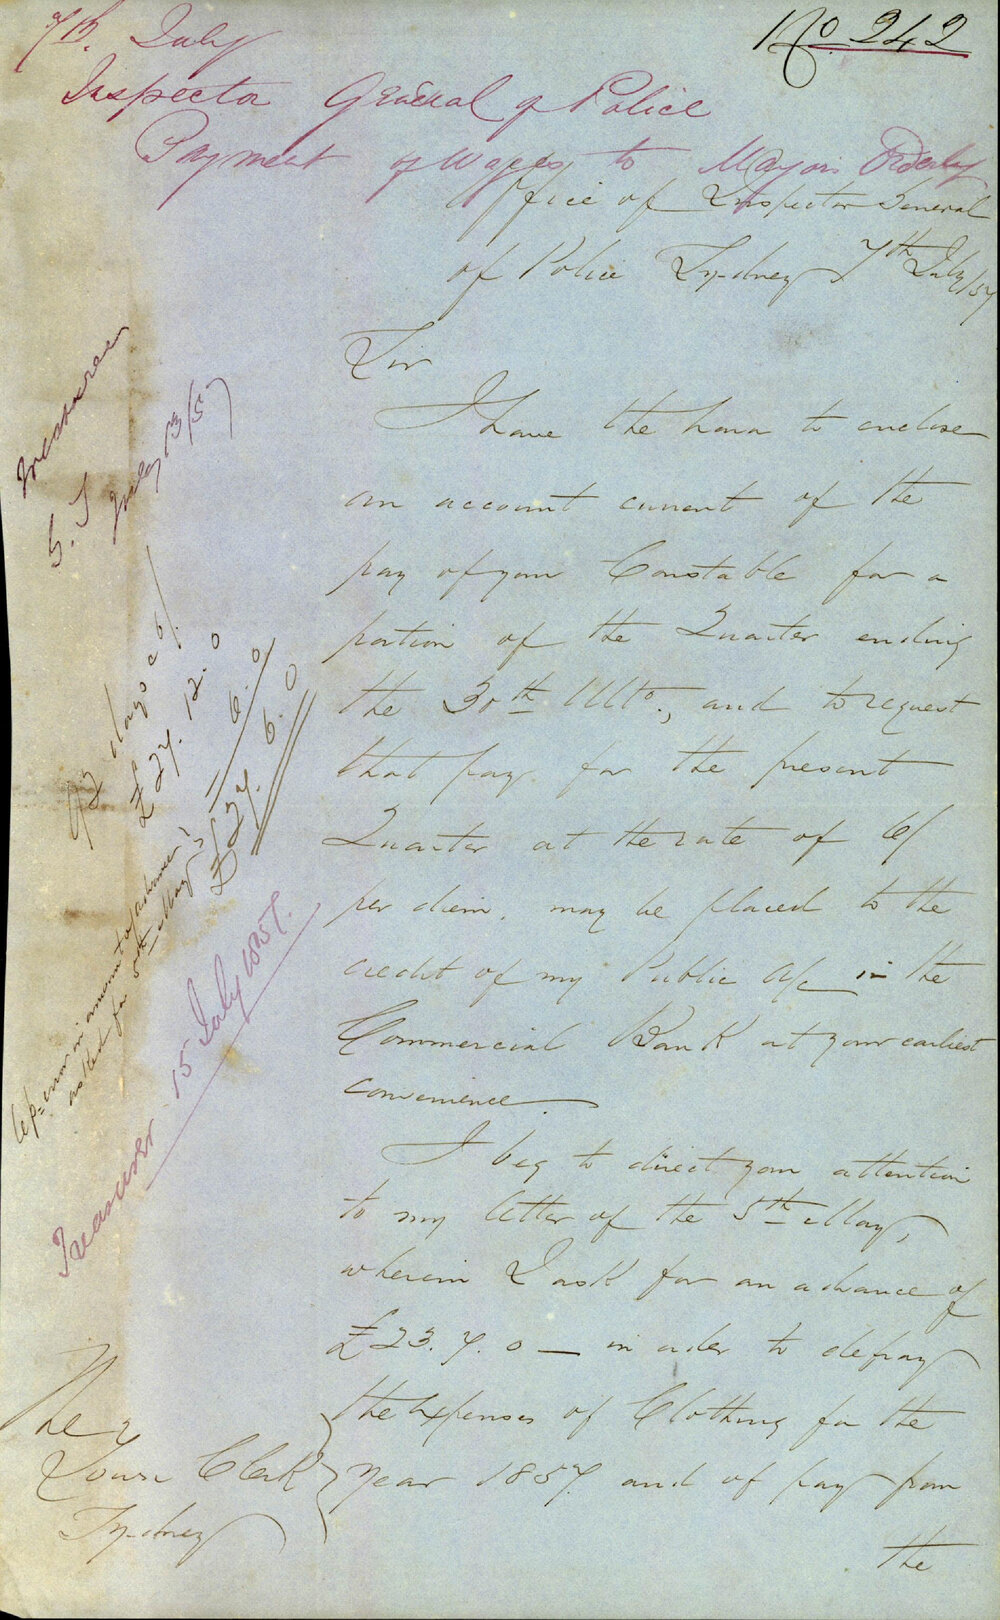 7th. July
No 242
Inspector General of Police
Payment of Wages to Mayors Orderly
Office of Inspector General
of Police Sydney 7th July/57
Sir
I have the honor to enclose
an account current of the
pay of your Constable for a
portion of the Quarter ending
the 30th Ulto., and to request
that pay for the present
Quarter at the rate of 6/
per diem. may be placed to the
credit of my Public A/c in the
Commercial Bank at your earliest
convenience.
I beg to direct your attention
to my letter of the 5th May,
wherein I ask for an advance of
£23.7.0 — in order to defray
the Expenses of Clothing for the
Year 1857. and of pay from
the
The
Town Clerk
Sydney
Treasurer
July 13/57
92 days @ 6/.
£27.12.0
error in amount of advance
asked for 5th May
6.0
£27.6.0
Treasurer 15 July 1857.